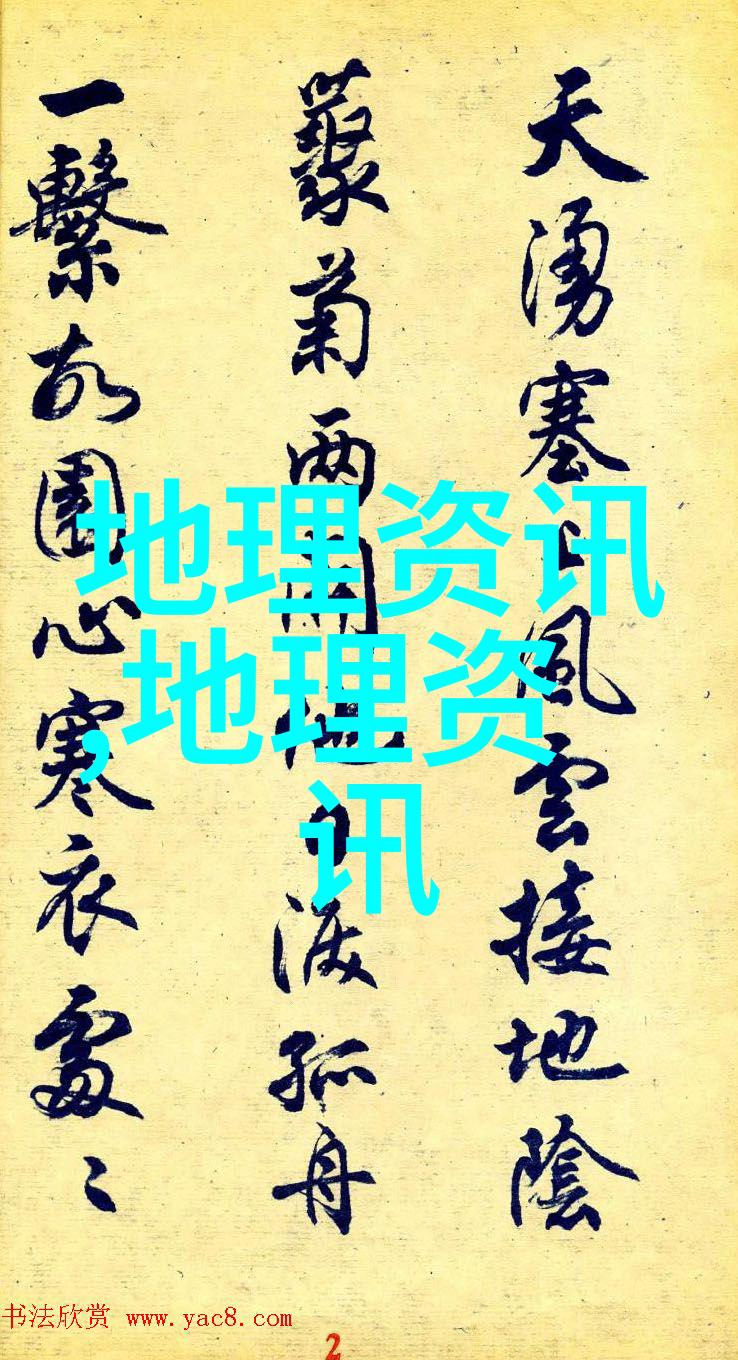 天湧塞上風雲接地陰
藂菊兩開他日淚孤舟
一繫故園心寒衣處〻
地理资讯
,地理资
讯
书法欣赏 www.yac8.com
2